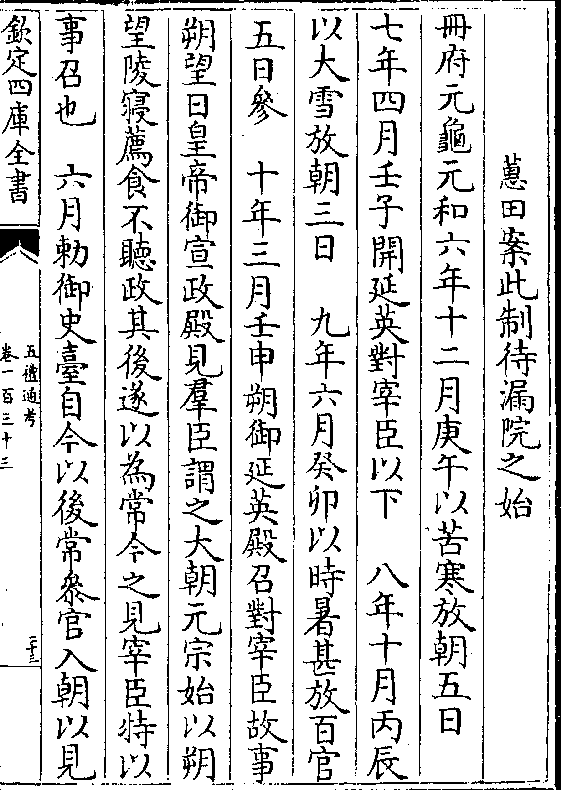 蕙田案此制待漏院之始
冊府元龜元和六年十二月庚午以苦寒放朝五日
七年四月壬子開延英對宰臣以下 八年十月丙辰
以大雪放朝三日 九年六月癸卯以時暑甚放百官
五日參 十年三月壬申朔御延英殿召對宰臣故事
朔望日皇帝御宣政殿見羣臣謂之大朝元宗始以朔
望陵寢薦食不聽政其後遂以為常今之見宰臣特以
事召也 六月勅御史臺自今以後常叅官入朝以見
欽定四庫全書
五禮通考
卷一百三十三
二十三